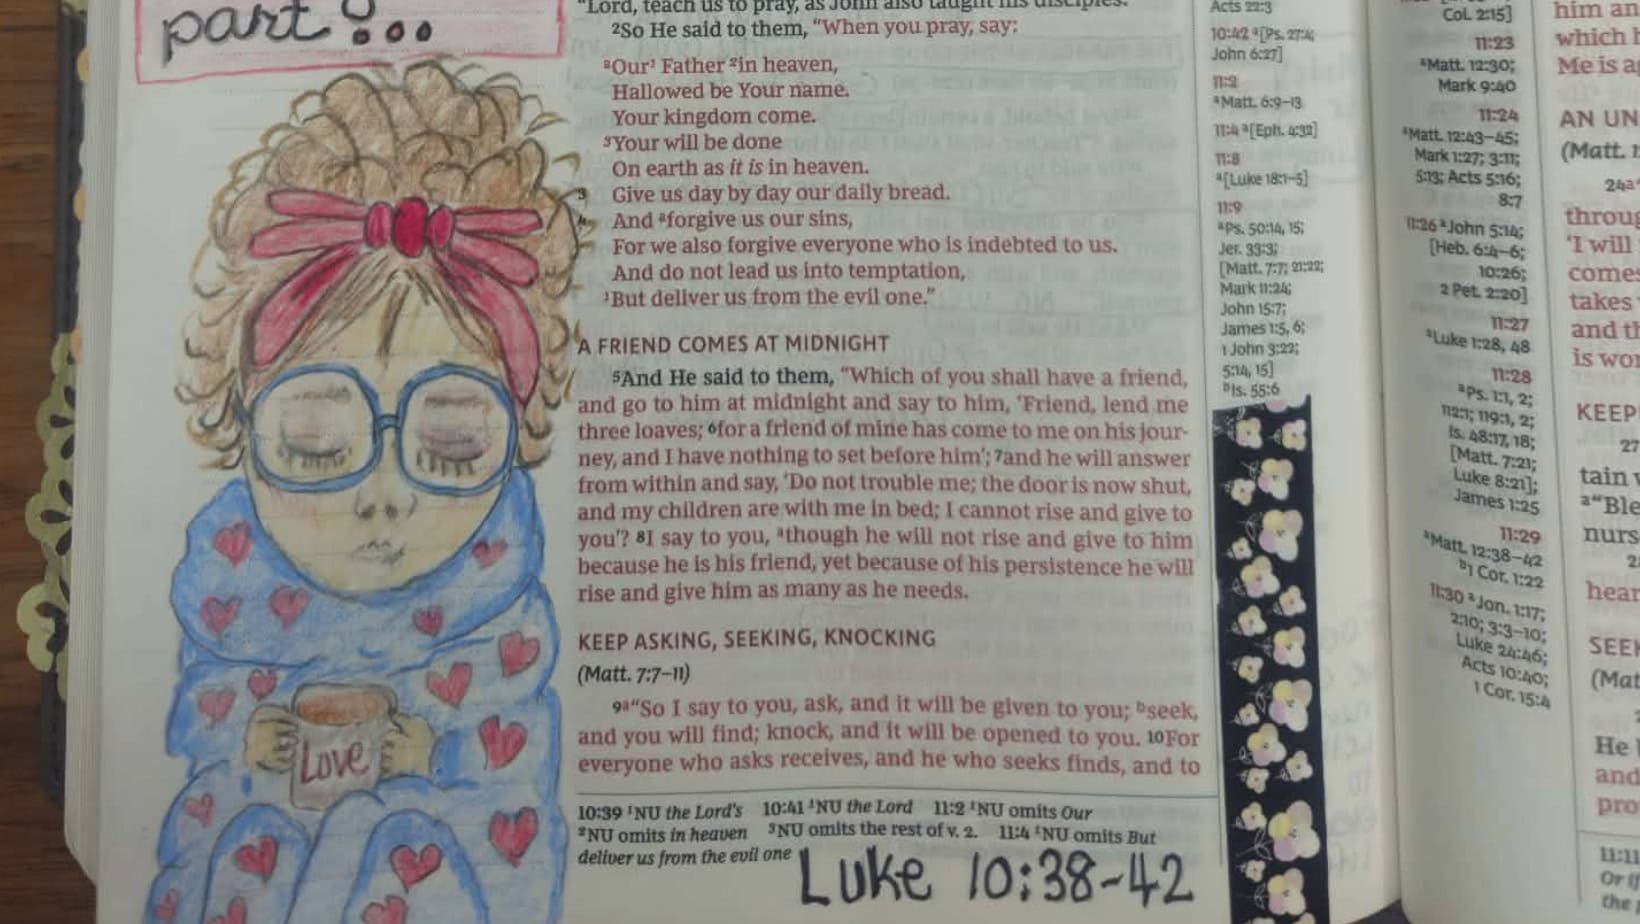 part?...
"Lord, teach us to pray, as John also taught his disciples."
²So He said to them, "When you pray, say:
ᵃOur¹ Father ²in heaven,
Hallowed be Your name.
Your kingdom come.
³Your will be done
On earth as it is in heaven.
3 Give us day by day our daily bread.
4 And ᵃforgive us our sins,
For we also forgive everyone who is indebted to us.
And do not lead us into temptation,
¹But deliver us from the evil one."
A FRIEND COMES AT MIDNIGHT
⁵And He said to them, "Which of you shall have a friend,
and go to him at midnight and say to him, 'Friend, lend me
three loaves; ⁶for a friend of mine has come to me on his jour-
ney, and I have nothing to set before him'; ⁷and he will answer
from within and say, 'Do not trouble me; the door is now shut,
and my children are with me in bed; I cannot rise and give to
you'? ⁸I say to you, ᵃthough he will not rise and give to him
because he is his friend, yet because of his persistence he will
rise and give him as many as he needs.
KEEP ASKING, SEEKING, KNOCKING
(Matt. 7:7–11)
9ᵃ"So I say to you, ask, and it will be given to you; ᵇseek,
and you will find; knock, and it will be opened to you. 10For
everyone who asks receives, and he who seeks finds, and to
10:39 ¹NU the Lord's 10:41 ¹NU the Lord 11:2 ¹NU omits Our
²NU omits in heaven ³NU omits the rest of v. 2. 11:4 ¹NU omits But
deliver us from the evil one
Luke 10:38-42
Love
Acts 22:3
10:42 ᵃ[Ps. 27:4;
John 6:27]
11:2
ᵃMatt. 6:9–13
11:4 ᵃ[Eph. 4:32]
11:8
ᵃ[Luke 18:1–5]
11:9
ᵃPs. 50:14, 15;
Jer. 33:3;
[Matt. 7:7; 21:22;
Mark 11:24;
John 15:7;
James 1:5, 6;
1 John 3:22;
5:14, 15]
ᵇIs. 55:6
Col. 2:15]
11:23
ᵃMatt. 12:30;
Mark 9:40
11:24
ᵃMatt. 12:43–45;
Mark 1:27; 3:11;
5:13; Acts 5:16;
8:7
11:26 ᵃJohn 5:14;
[Heb. 6:4–6;
10:26;
2 Pet. 2:20]
11:27
ᵃLuke 1:28, 48
11:28
ᵃPs. 1:1, 2;
112:1; 119:1, 2;
Is. 48:17, 18;
[Matt. 7:21;
Luke 8:21];
James 1:25
11:29
ᵃMatt. 12:38–42
ᵇ1 Cor. 1:22
11:30 ᵃJon. 1:17;
2:10; 3:3–10;
Luke 24:46;
Acts 10:40;
1 Cor. 15:4
him an
which h
Me is a
AN UN
(Matt. 1
24a"
throug
'I will
comes
takes
and th
is wor
KEEP
27
tain
a"Ble
nurs
hear
SEEK
(Mat
He
and
pro
11:11
Or if
the